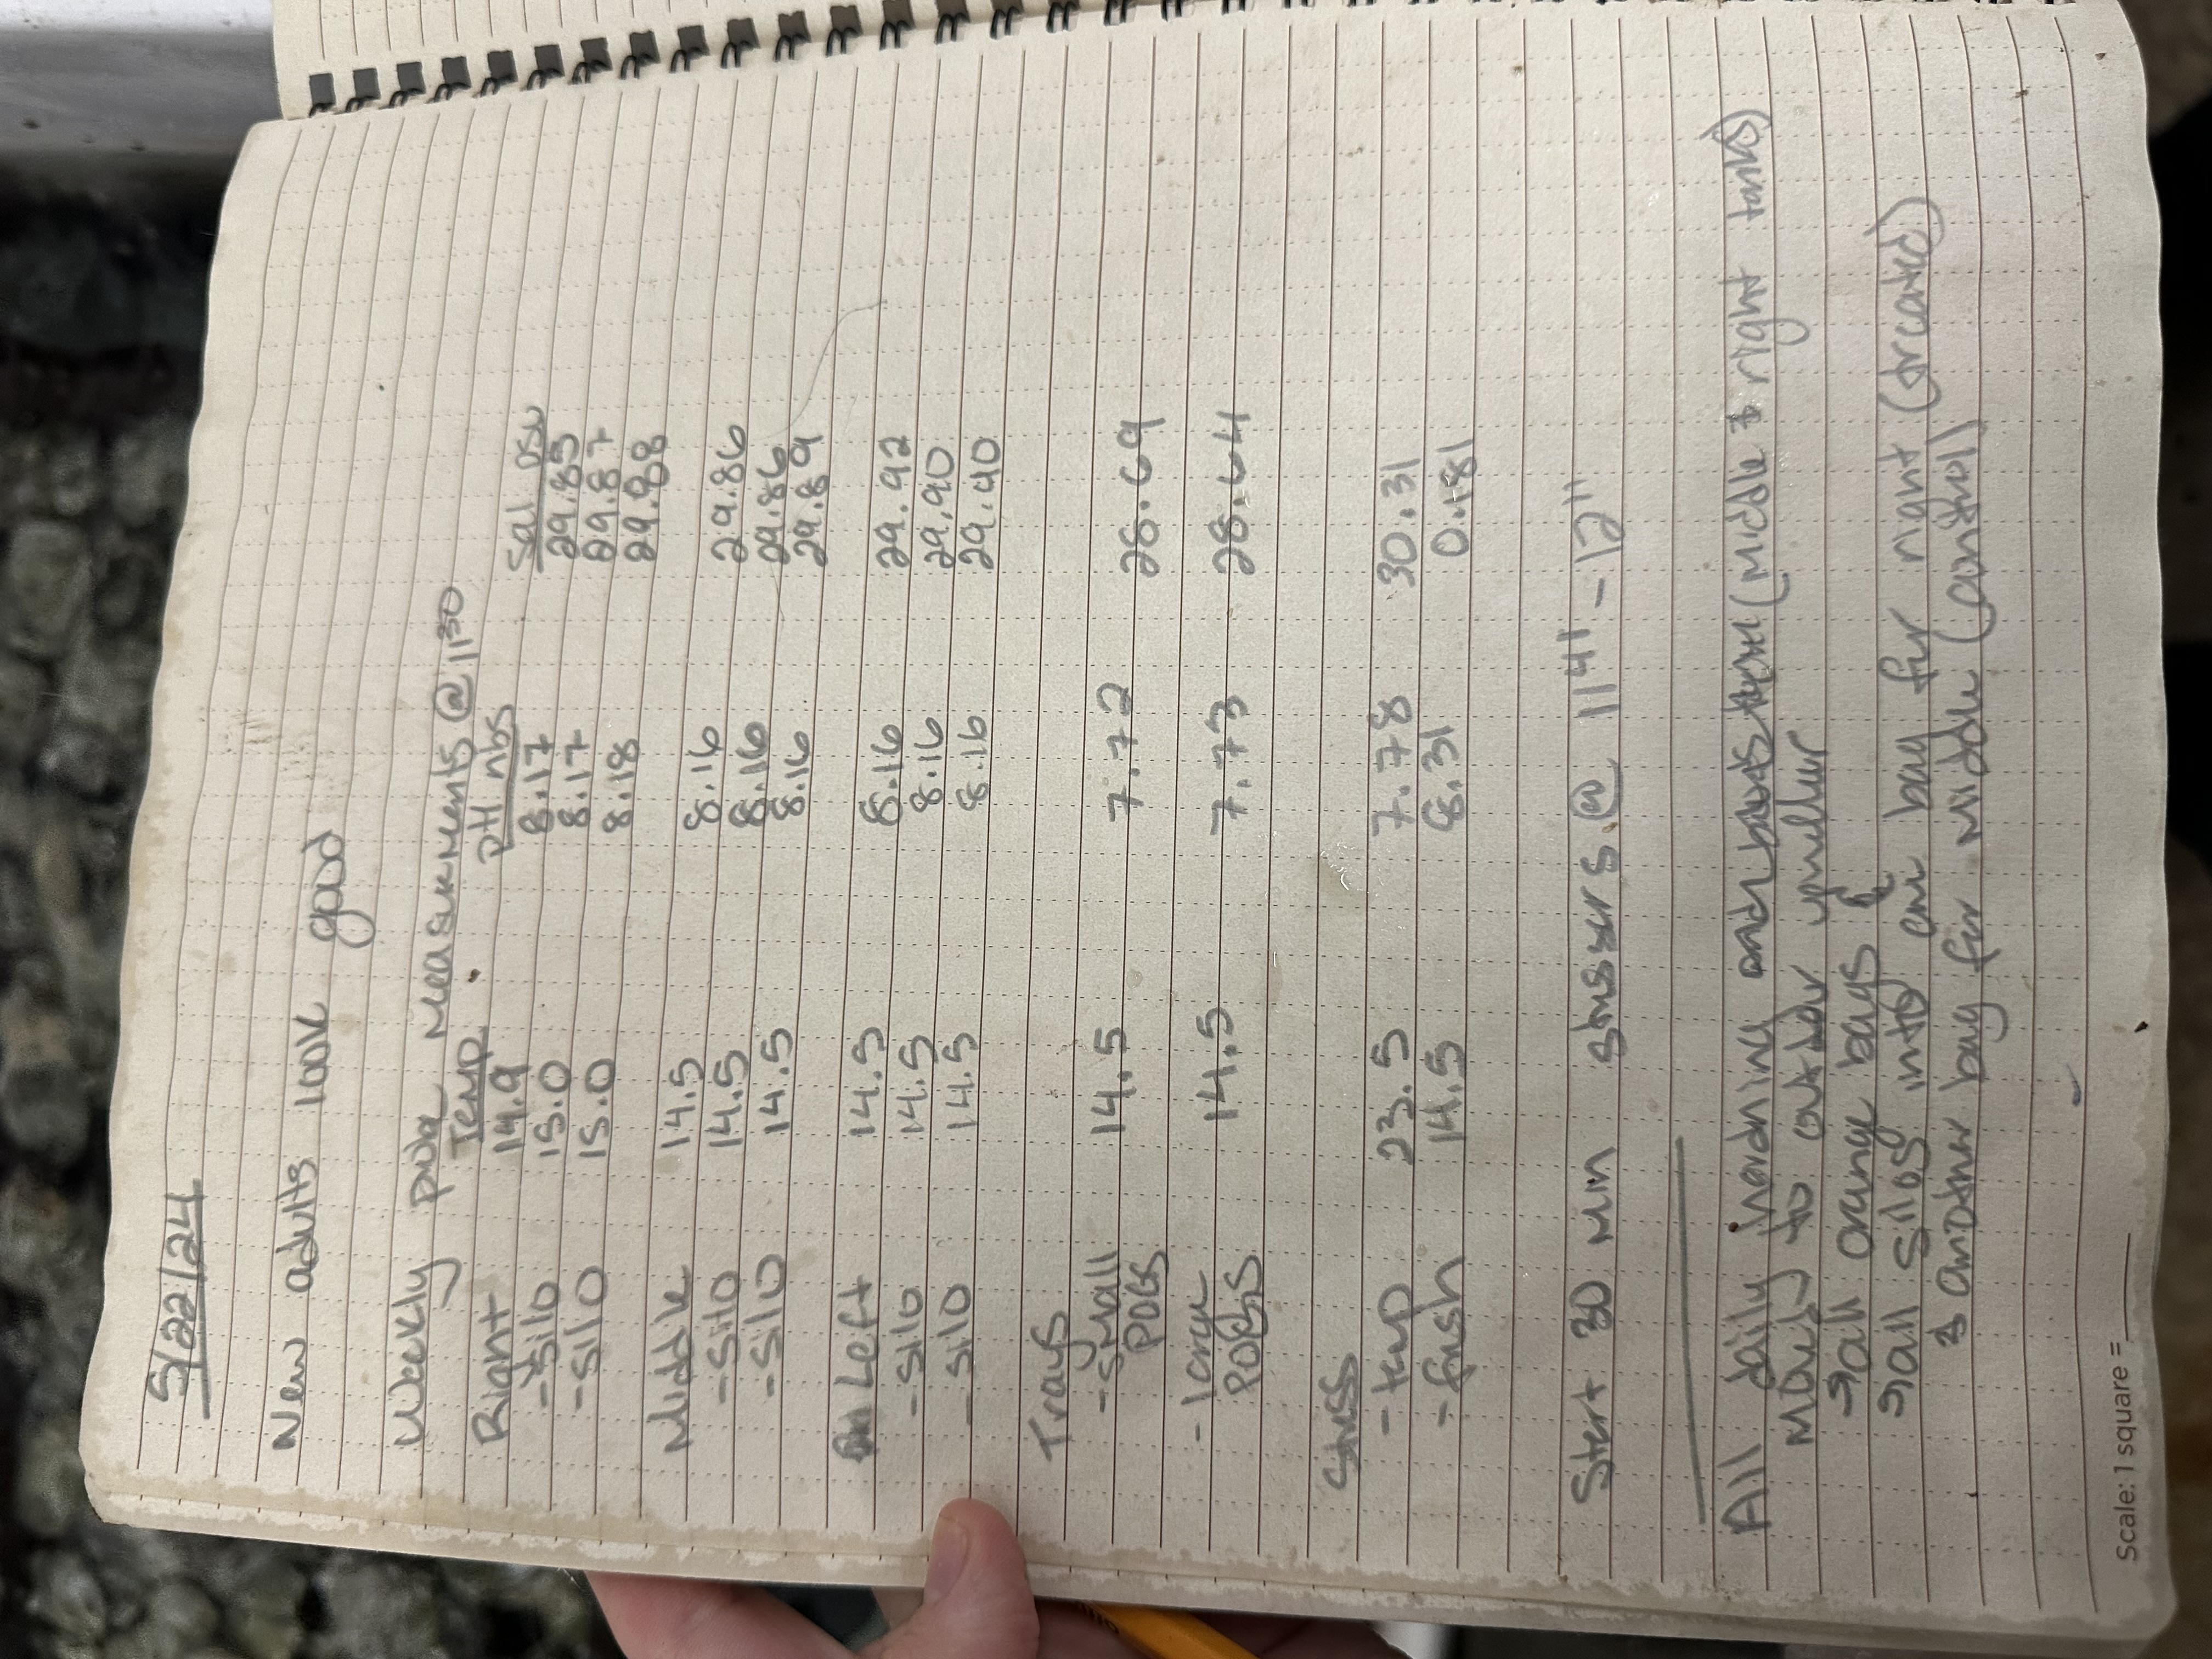 5/22/24
New adults look good
Weekly probe measurements @ 11³⁰
Temp pH nbs Sal psu
Right 14.9 8.17 29.85
- silo 15.0 8.17 29.87
- silo 15.0 8.18 29.88
Middle 14.5 8.16 29.86
- silo 14.5 8.16 29.86
- silo 14.5 8.16 29.89
Left 14.5 8.16 29.92
- silo 14.5 8.16 29.90
- silo 14.5 8.16 29.90
Trays
- small 14.5 7.72 28.69
POGS
- large 14.5 7.73 28.64
POGS
Stress
- temp 23.5 7.78 30.31
- fresh 14.5 8.31 0.181
Start 30 min stressers @ 11⁴¹ - 12¹¹
All daily hardning (middle & right tanks)
moved to outdoor upweller
→ all orange bags
→ all silos into one bag for right (treated)
& another bag for middle (control)
Scale: 1 square =